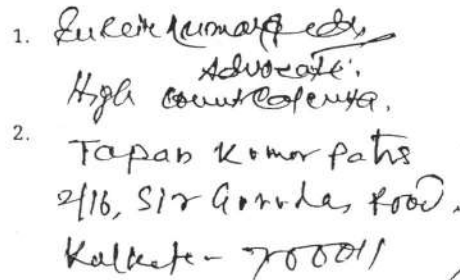 1. Kumar
Advocate.
High Court Calcutta.
2.
Tapan Kumar Patra
2/16, Sir Gurudas Road.
Kolkata - 700011